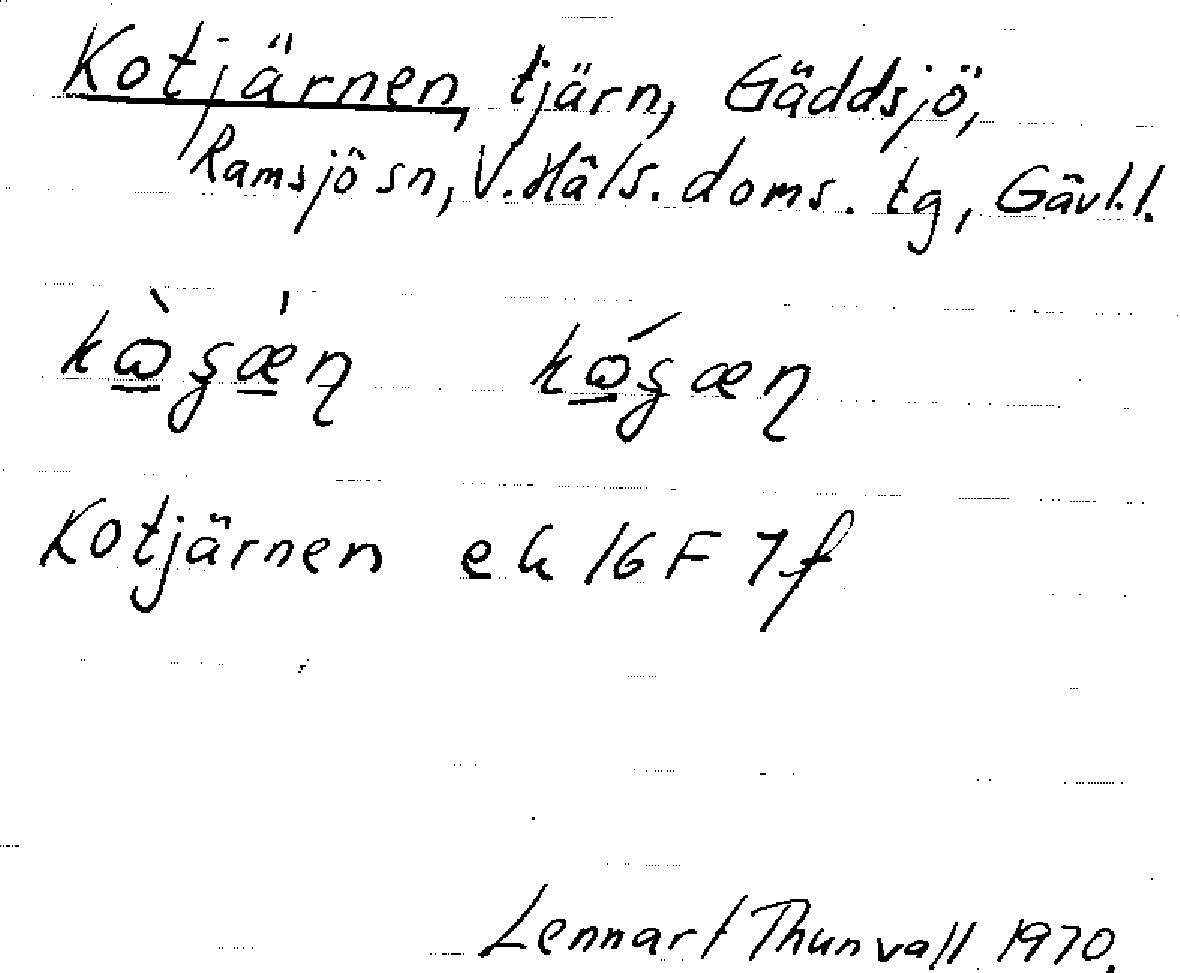 Kotjärnen, tjärn, Gäddsjö,
Ramsjö sn, V. Häls. doms. tg, Gävl.l.
Kotjärnen ek 16 F 7f
Lennart Thunvall 1970.